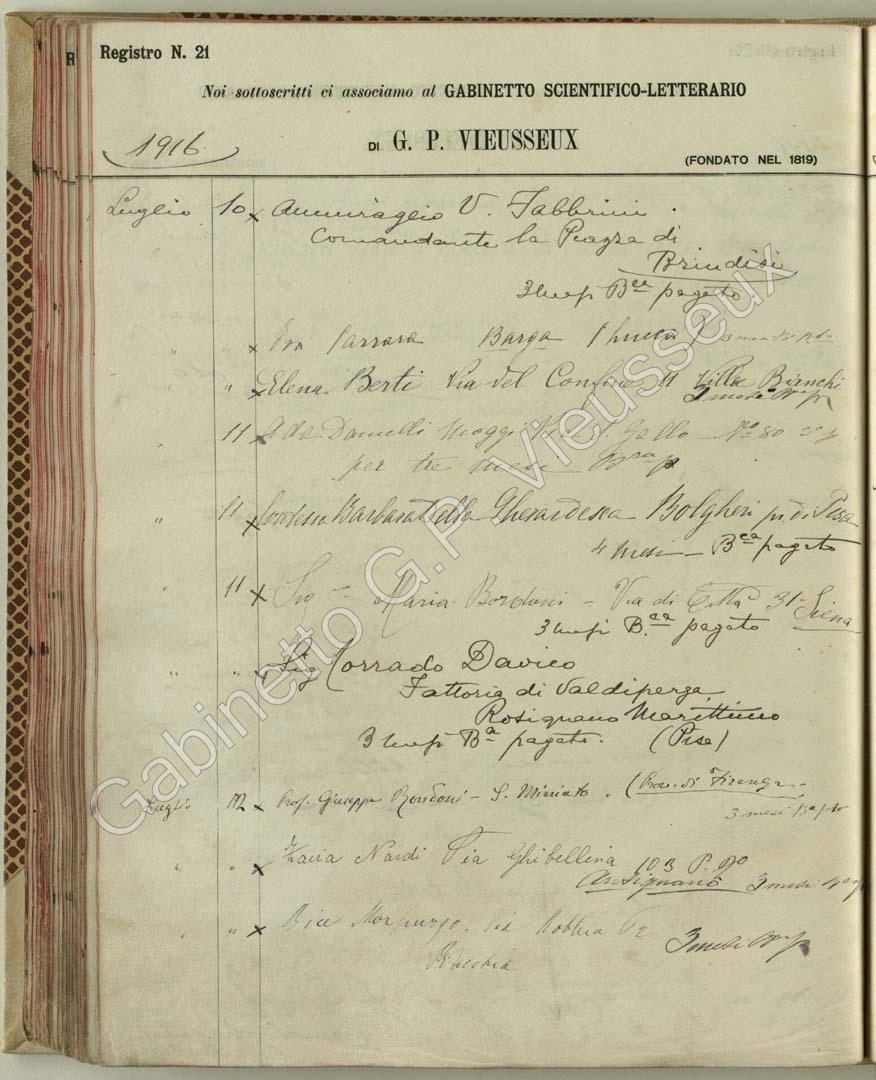 Registro N. 21
Noi sottoscritti ci associamo al GABINETTO SCIENTIFICO-LETTERARIO
DI G. P. VIEUSSEUX
(FONDATO NEL 1819)
1916
Luglio 10 x Ammiraglio V. Fabbrini.
Comandante la Piazza di
Brindisi
3 mesi Bca pagato
" " x Barga (Lucca)
" x Elena Berti Via del Confine 11 Villa Bianchi
3 mesi
11 Gallo No 80
per tre mesi
" 11 x Contessa Della Gherardesca Bolgheri di Pisa
4 mesi - Bca pagato
11 x Maria Bordoni - Via di Città 31 - Siena
3 mesi B.ca pagato
" " x Sig Corrado Davico
Fattoria di Valdiperga
Rosignano Marittimo
3 mesi Ba pagato. (Pisa)
Luglio 12 x Prof. Giuseppe Rondoni - S. Miniato. (Prov. di Firenze -
3 mesi
" " x Nardi Via Ghibellina 103 P. no
Antignano 3 mesi
" " x Bice Morpurgo. Via
3 mesi
Gabinetto G.P. Vieusseux